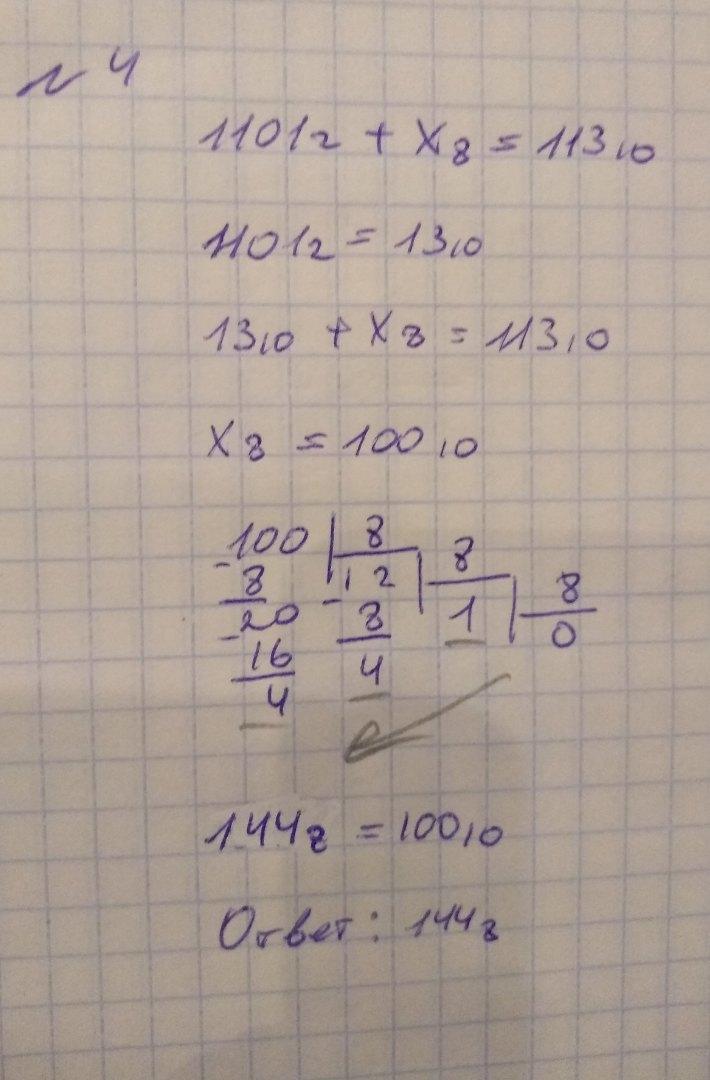 № 4
1101₂ + X₈ = 113₁₀
1101₂ = 13₁₀
13₁₀ + X₈ = 113₁₀
X₈ = 100₁₀
100 | 8
- 8 | 12 | 8
20 - 8 | 1 | 8
- 16 4 0
4
144₈ = 100₁₀
Ответ: 144₈